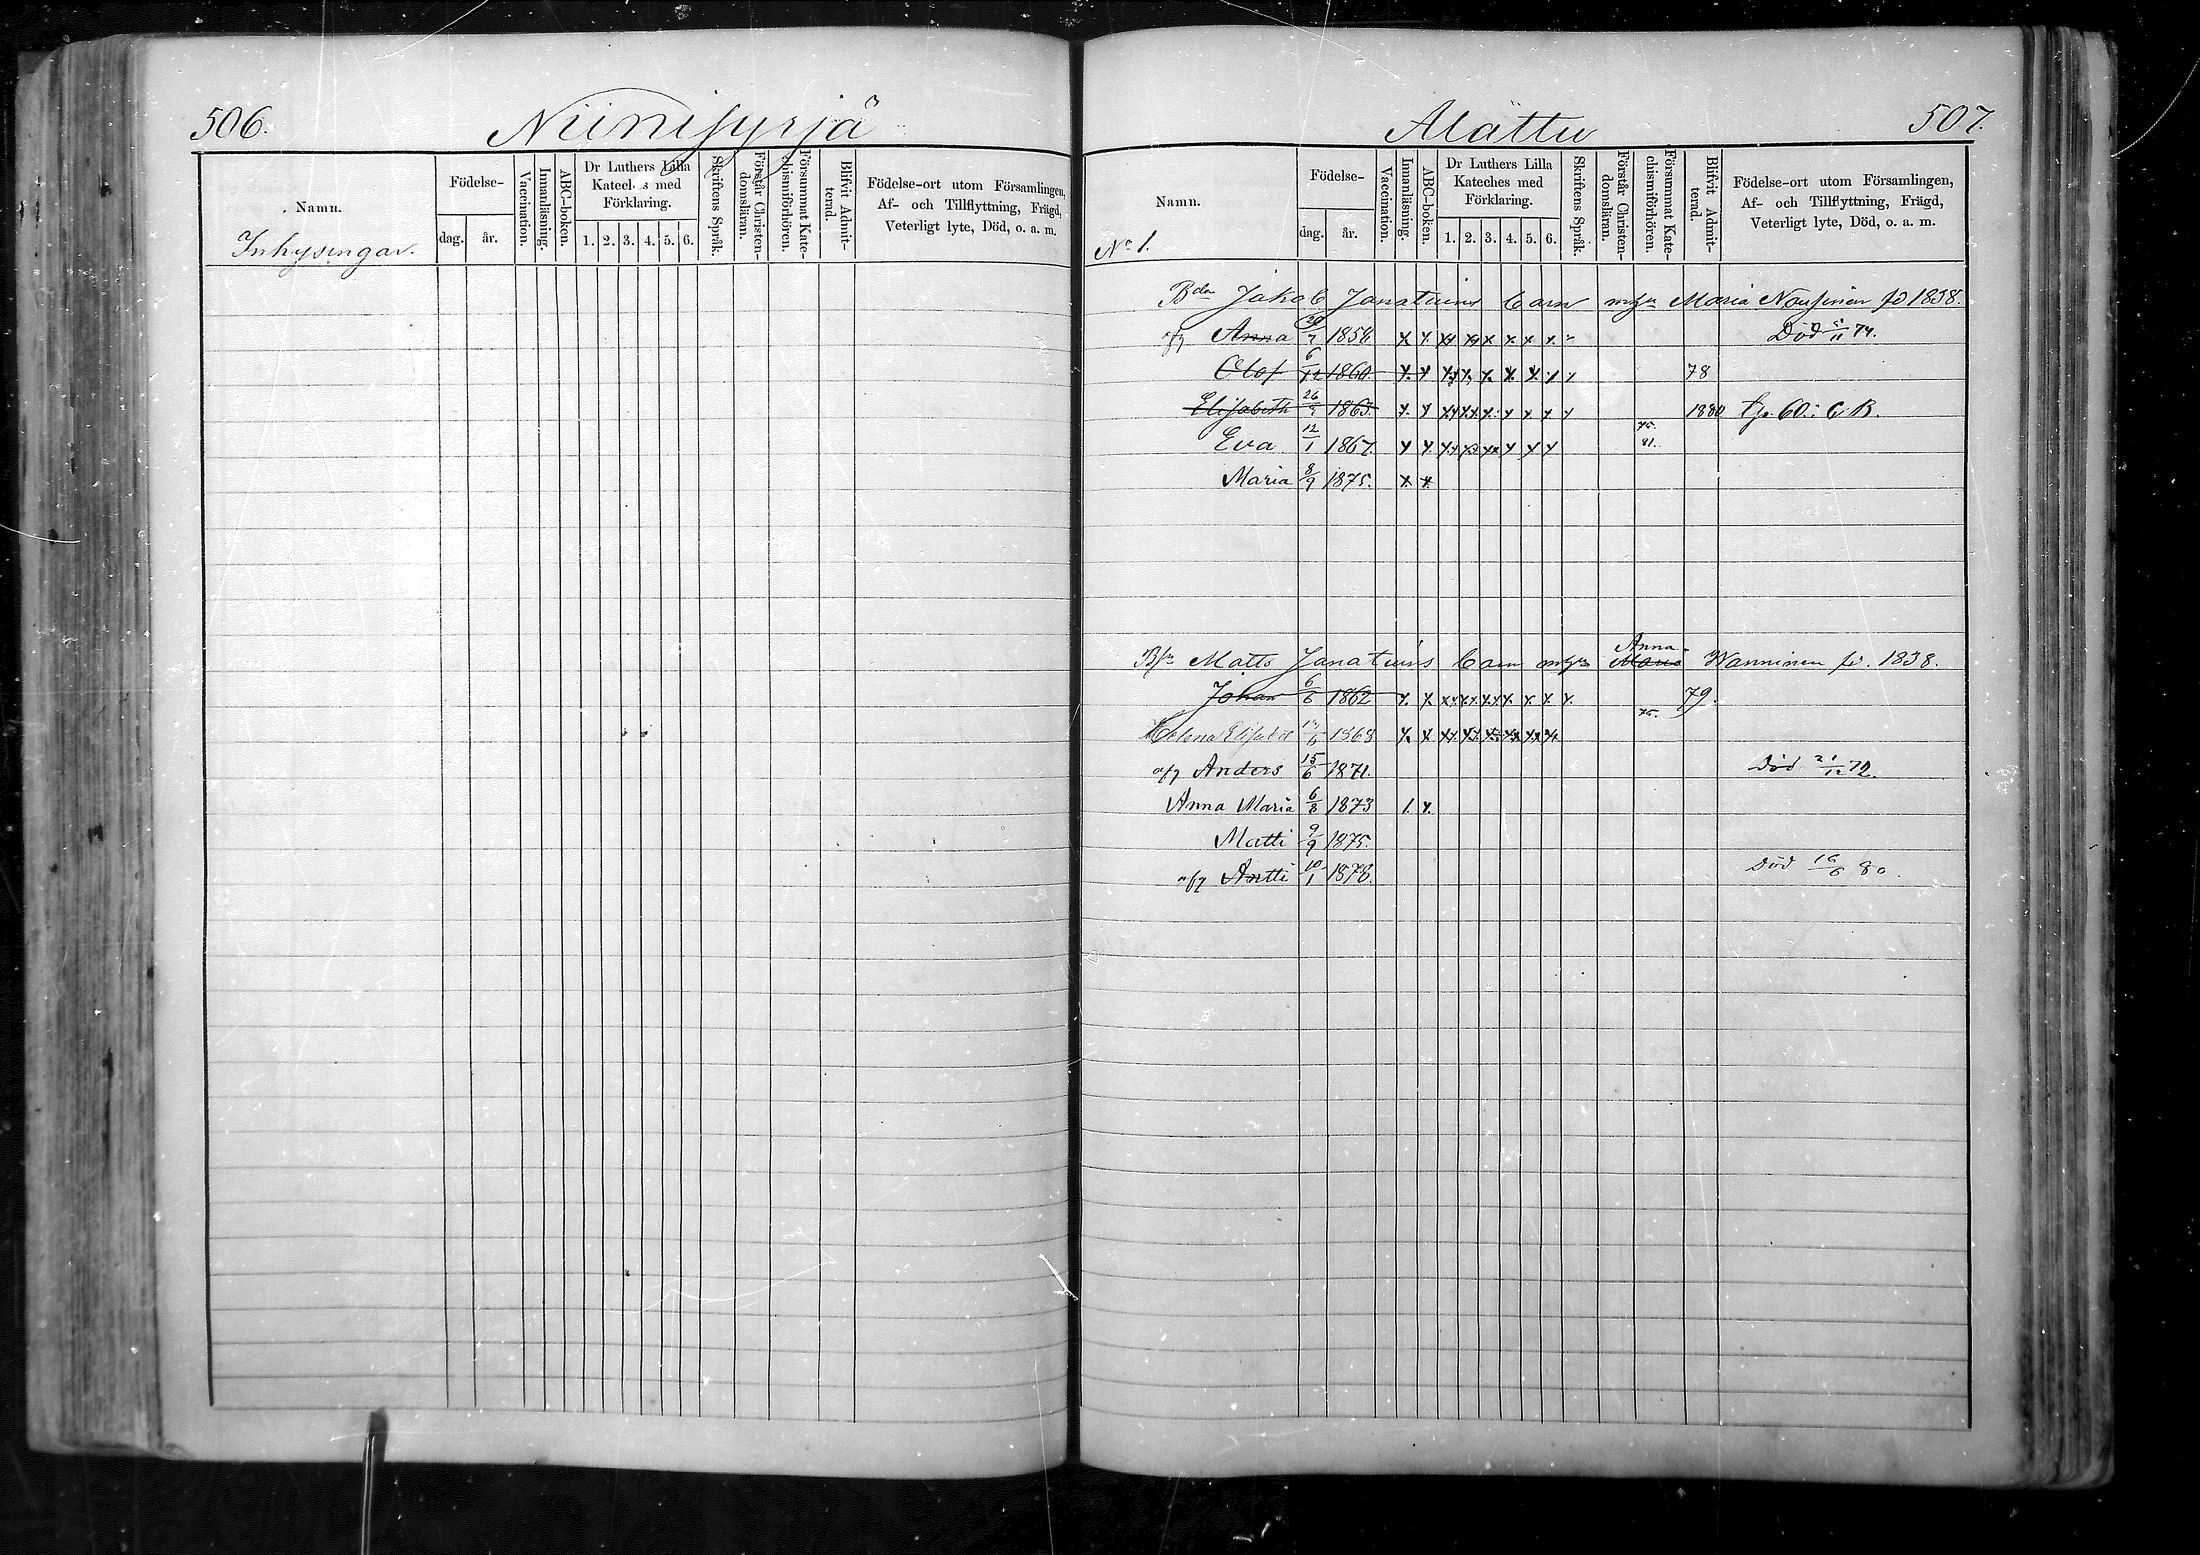 506.
Niinisyrjä
Namn.
Födelse-
dag. år.
Vaccination.
Innanläsning.
ABC-boken.
Dr Luthers Lilla
Kateches med
Förklaring.
1. 2. 3. 4. 5. 6.
Skriftens Språk.
Förstår Christen-
domsläran.
Försummat Kate-
chismiförhören.
Blifvit Admit-
terad.
Födelse-ort utom Församlingen,
Af- och Tillflyttning, Frägd,
Veterligt lyte, Död, o. a. m.
Inhysingar.
Alättu
507.
Namn.
No 1.
Födelse-
dag. år.
Vaccination.
Innanläsning.
ABC-boken.
Dr Luthers Lilla
Kateches med
Förklaring.
1. 2. 3. 4. 5. 6.
Skriftens Språk.
Förstår Christen-
domsläran.
Försummat Kate-
chismiförhören.
Blifvit Admit-
terad.
Födelse-ort utom Församlingen,
Af- och Tillflyttning, Frägd,
Veterligt lyte, Död, o. a. m.
Bdn Jakob Janatuins barn Maria Nousinen 1838.
Anna x x x x x x x x Död 74.
Olof 6/12 1860. x x x x x x x x x 78
Elisabeth 1863. x x x x x x x x x 1880
75.
Eva 12/1 1867. x x x x x x x x 81.
Maria 8/9 1875. x x
Anna
Matts Janatuins barn Maria Wanninen 1838.
Johan 6/6 1862 x x x x x x x x x 79.
75.
Helena 1868 x x x x x x x x
Anders 15/6 1871. Död 21/12 72.
Anna Maria 6/8 1873
Matti 9/9 1875.
Antti 10/1 1878. Död 80.